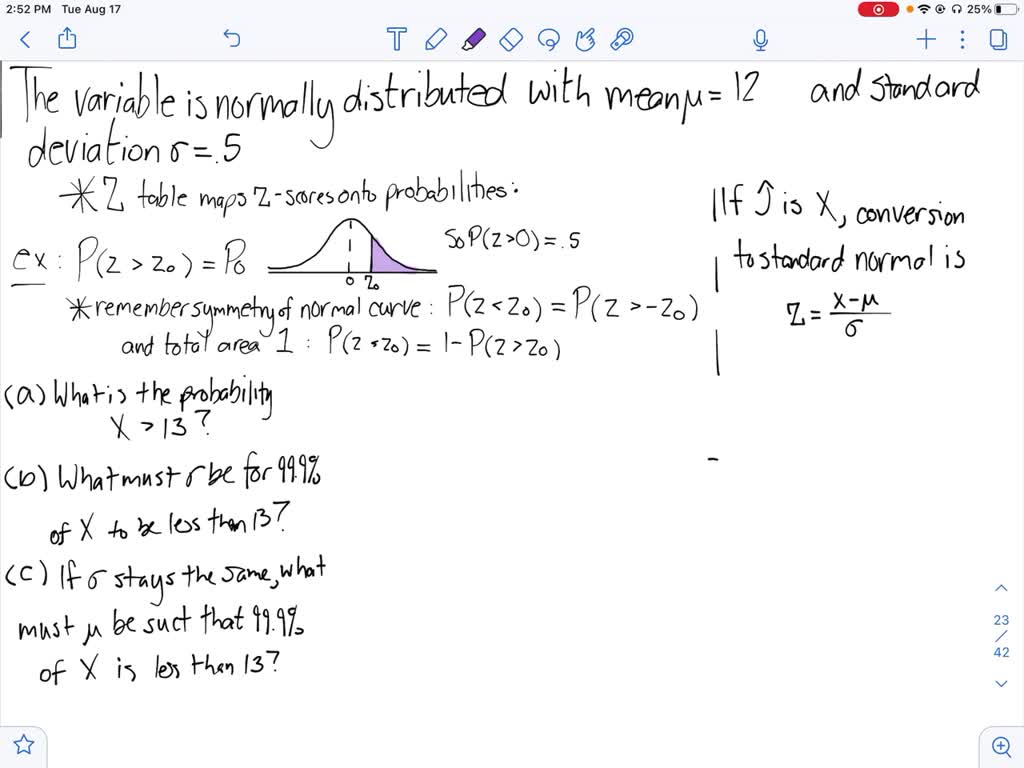 2:52 PM Tue Aug 17
25%
The variable is normally distributed with mean μ = 12 and standard
deviation σ = .5
* Z table maps Z-scores onto probabilities:
ex: P(Z > Z₀) = P₀
0 Z₀
So P(Z>0) = .5
* remember symmetry of normal curve: P(Z < Z₀) = P(Z > -Z₀)
and total area 1: P(Z < Z₀) = 1 - P(Z > Z₀)
If ↑ is X, conversion
to standard normal is
Z = (X-μ)/σ
(a) What is the probability
X > 13?
(b) What must σ be for 99.9%
of X to be less than 13?
(c) If σ stays the same, what
must μ be suct that 99.9%
of X is less than 13?
23
/
42